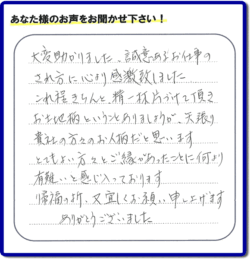 あなた様のお声をお聞かせ下さい！
大変助かりました、誠意あるお仕事の
され方に心より感激致しました
これ程きちんと、精一杯片づけて頂き
お土地柄ということもありましょうが、矢張り
貴社の方々のお人柄だと思います
とてもよい方々とご縁があったことに何より
有難いと感じ入っております
帰福の折、又宜しくお願い申し上げます
ありがとうございました